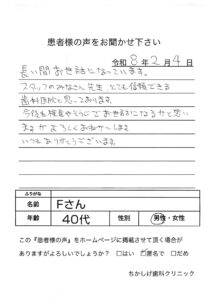 患者様の声をお聞かせ下さい
令和 8年 2月 4日
長い間お世話になっています。
スタッフのみなさん 先生 とても信頼できる
歯科医院だと思っております。
今後も検査やそうじでお世話になるかと思い
ますがよろしくおねがいします
いつもありがとうございます。
ふりがな
名前 Fさん
年齢 40代 性別 男性・女性
この『患者様の声』をホームページに掲載させて頂く場合が
ありますがよろしいでしょうか? □はい □匿名で □だめ
ちかしげ歯科クリニック